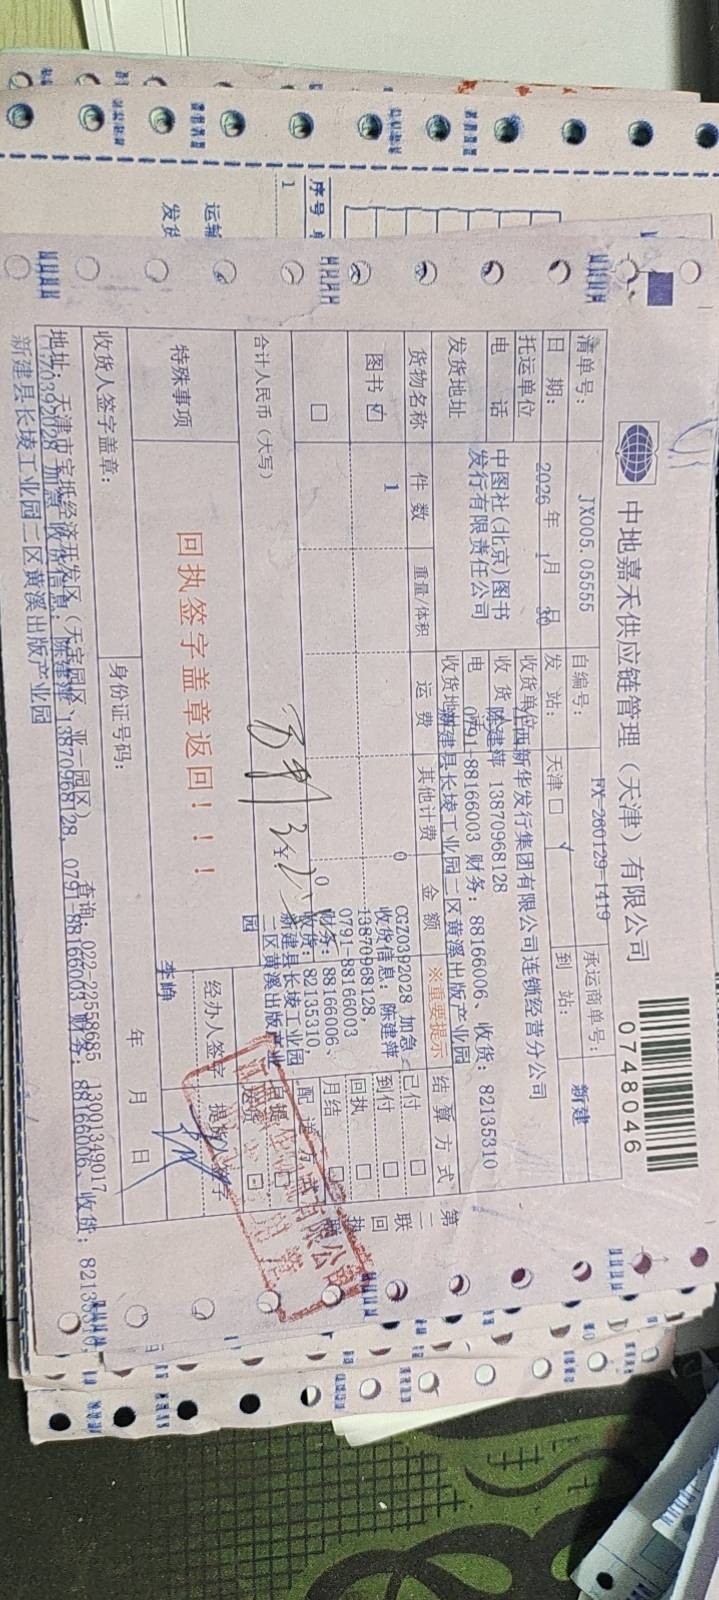 中地嘉禾供应链管理（天津）有限公司
0748046
清单号： JX005.05555 自编号： FX-260129-1419 承运商单号：
日 期： 2026 年 1月 日 发 站： 天津 □ √ 到 站： 新建
托运单位 中图社(北京)图书发行有限责任公司 收货单位 江西新华发行集团有限公司连锁经营分公司
电 话 收 货 陈建萍 13870968128
电 0791-88166003 财务：88166006、收货：82135310
发货地址 收货地 新建县长堎工业园二区黄溪出版产业园
货物名称 件 数 重量/体积 运 费 其他计费 金 额 ※重要提示 结 算 方 式
图书 ☑ 1 0
CGZ0392028 加急
收货信息：陈建萍
13870968128,
0791-88166003
财务：88166006、
收货：82135310,
新建县长堎工业园
二区黄溪出版产业
园
已付 □
到付 □
回执 □
月结 □
配 送 方 式
自提 □
送货 □
□ 0
合计人民币（大写）
特殊事项 回执签字盖章返回！！！
经办人签字 提货人签字
李峥
收货人签字盖章： 身份证号码： 年 月 日
地址：天津市宝坻经济开发区（天宝园区、亚一园区） 查询：022-22558685 13001349017
CGZ0392028 加急 收货信息：陈建萍 13870968128, 0791-88166003 财务：88166006、收货：82135310,
新建县长堎工业园二区黄溪出版产业园
第二联 回执联
序号
1
运输
发货